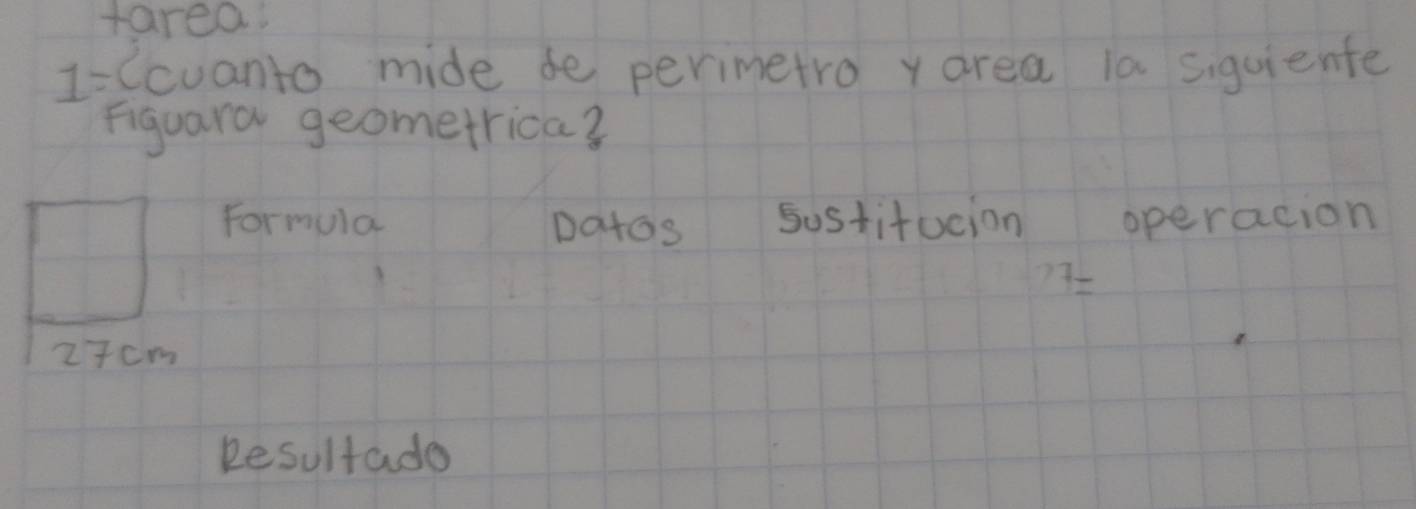 tarea:
1=¿cuanto mide de perimetro y area la siguiente
Figuara geometrica?
Formula Datos Sustitucion operacion
27=
27cm
Resultado